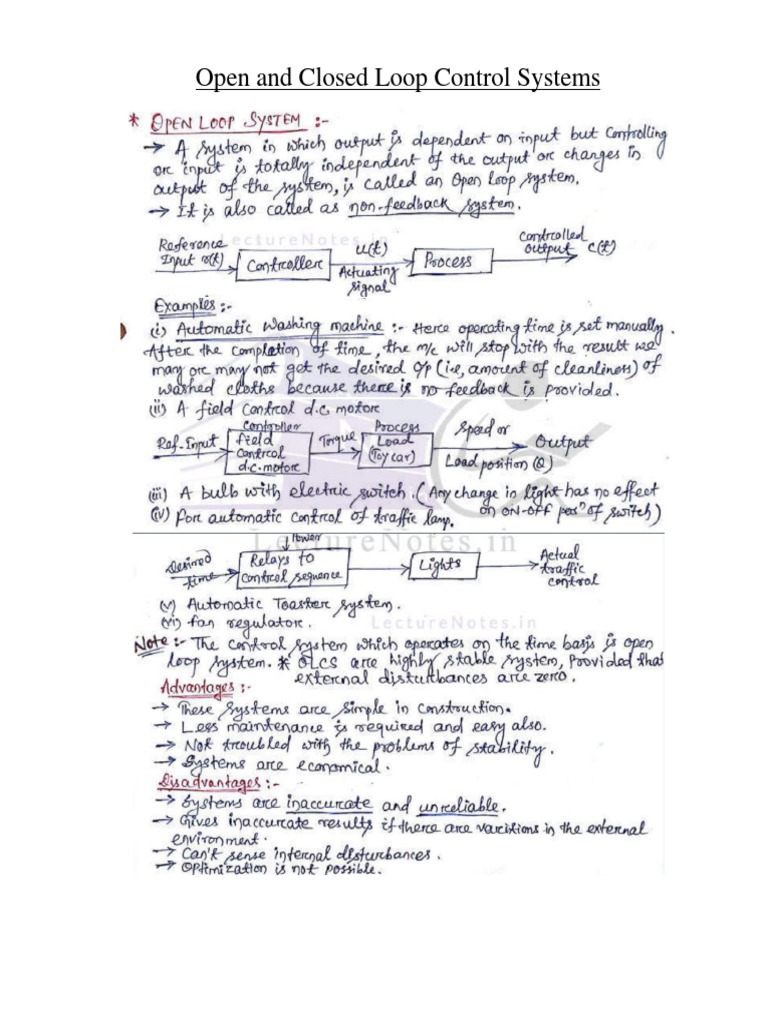 Open and Closed Loop Control Systems
* OPEN LOOP SYSTEM :-
→ A system in which output is dependent on input but controlling
or input is totally independent of the output or changes in
output of the system, is called an open loop system.
→ It is also called as non-feedback system.
LectureNotes.in
Reference
Input r(t)
Controller
u(t)
Actuating
signal
Process
Controlled
output c(t)
Examples :-
(i) Automatic Washing machine :- Here operating time is set manually.
After the completion of time, the m/c will stop with the result we
may or may not get the desired o/p (i.e, amount of cleanliness) of
washed cloths because there is no feedback is provided.
(ii) A field control d.c. motor
Ref. Input
Controller
field
control
d.c. motor
Torque
Process
Load
(Toy car)
Speed or
Load position (Q)
Output
(iii) A bulb with electric switch. (Any change in light has no effect
on ON-OFF posn of switch)
(iv) For automatic control of traffic lamp.
LectureNotes.in
Desired
time
Power
Relays to
control sequence
Lights
Actual
traffic
control
(v) Automatic Toaster system.
(vi) fan regulator.
LectureNotes.in
Note :- The control system which operates on the time basis is open
loop system. * OLCS are highly stable system, Provided that
external disturbances are zero.
Advantages :-
→ These systems are simple in construction.
→ Less maintenance is required and easy also.
→ Not troubled with the problems of stability.
→ Systems are economical.
Disadvantages :-
→ Systems are inaccurate and unreliable.
→ Gives inaccurate results if there are varitions in the external
environment.
→ Can't sense internal disturbances.
→ Optimization is not possible.